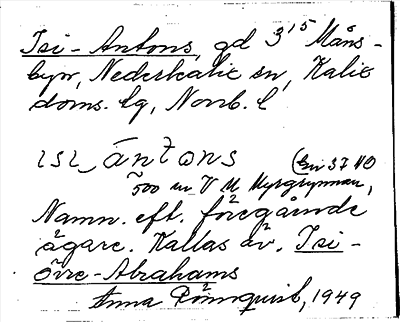 Isi-Antons, gd 3¹⁵ Måns-
byn, Nederkalix sn, Kalix
doms. lg, Norrb. l
ɩsɩ ántɷns
500 m V
Namn. eft. föregående
ägare. Kallas äv. Isi-
övre-Abrahams
Anna Rönnquist, 1949